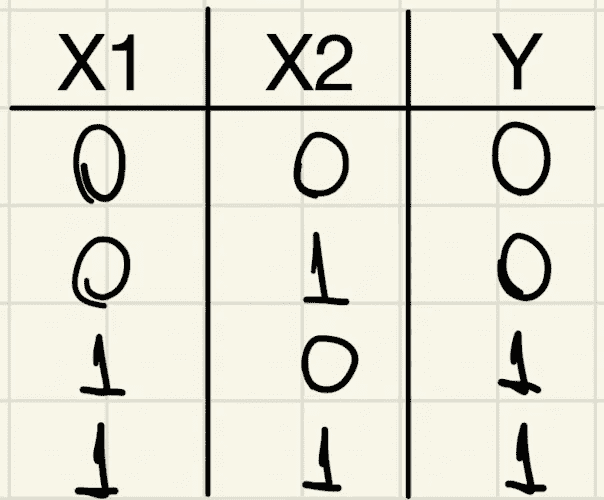 X1 X2 Y
0 0 0
0 1 0
1 0 1
1 1 1